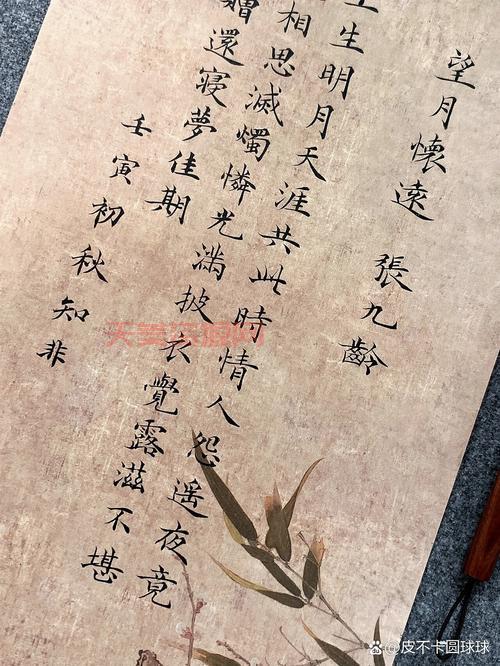 望月懷遠 張九齡
上生明月天涯共此時情人怨遙夜竟
相思滅燭憐光滿披衣覺露滋不堪
贈還寢夢佳期
壬寅初秋知非
天美资源网
@皮不卡圆球球